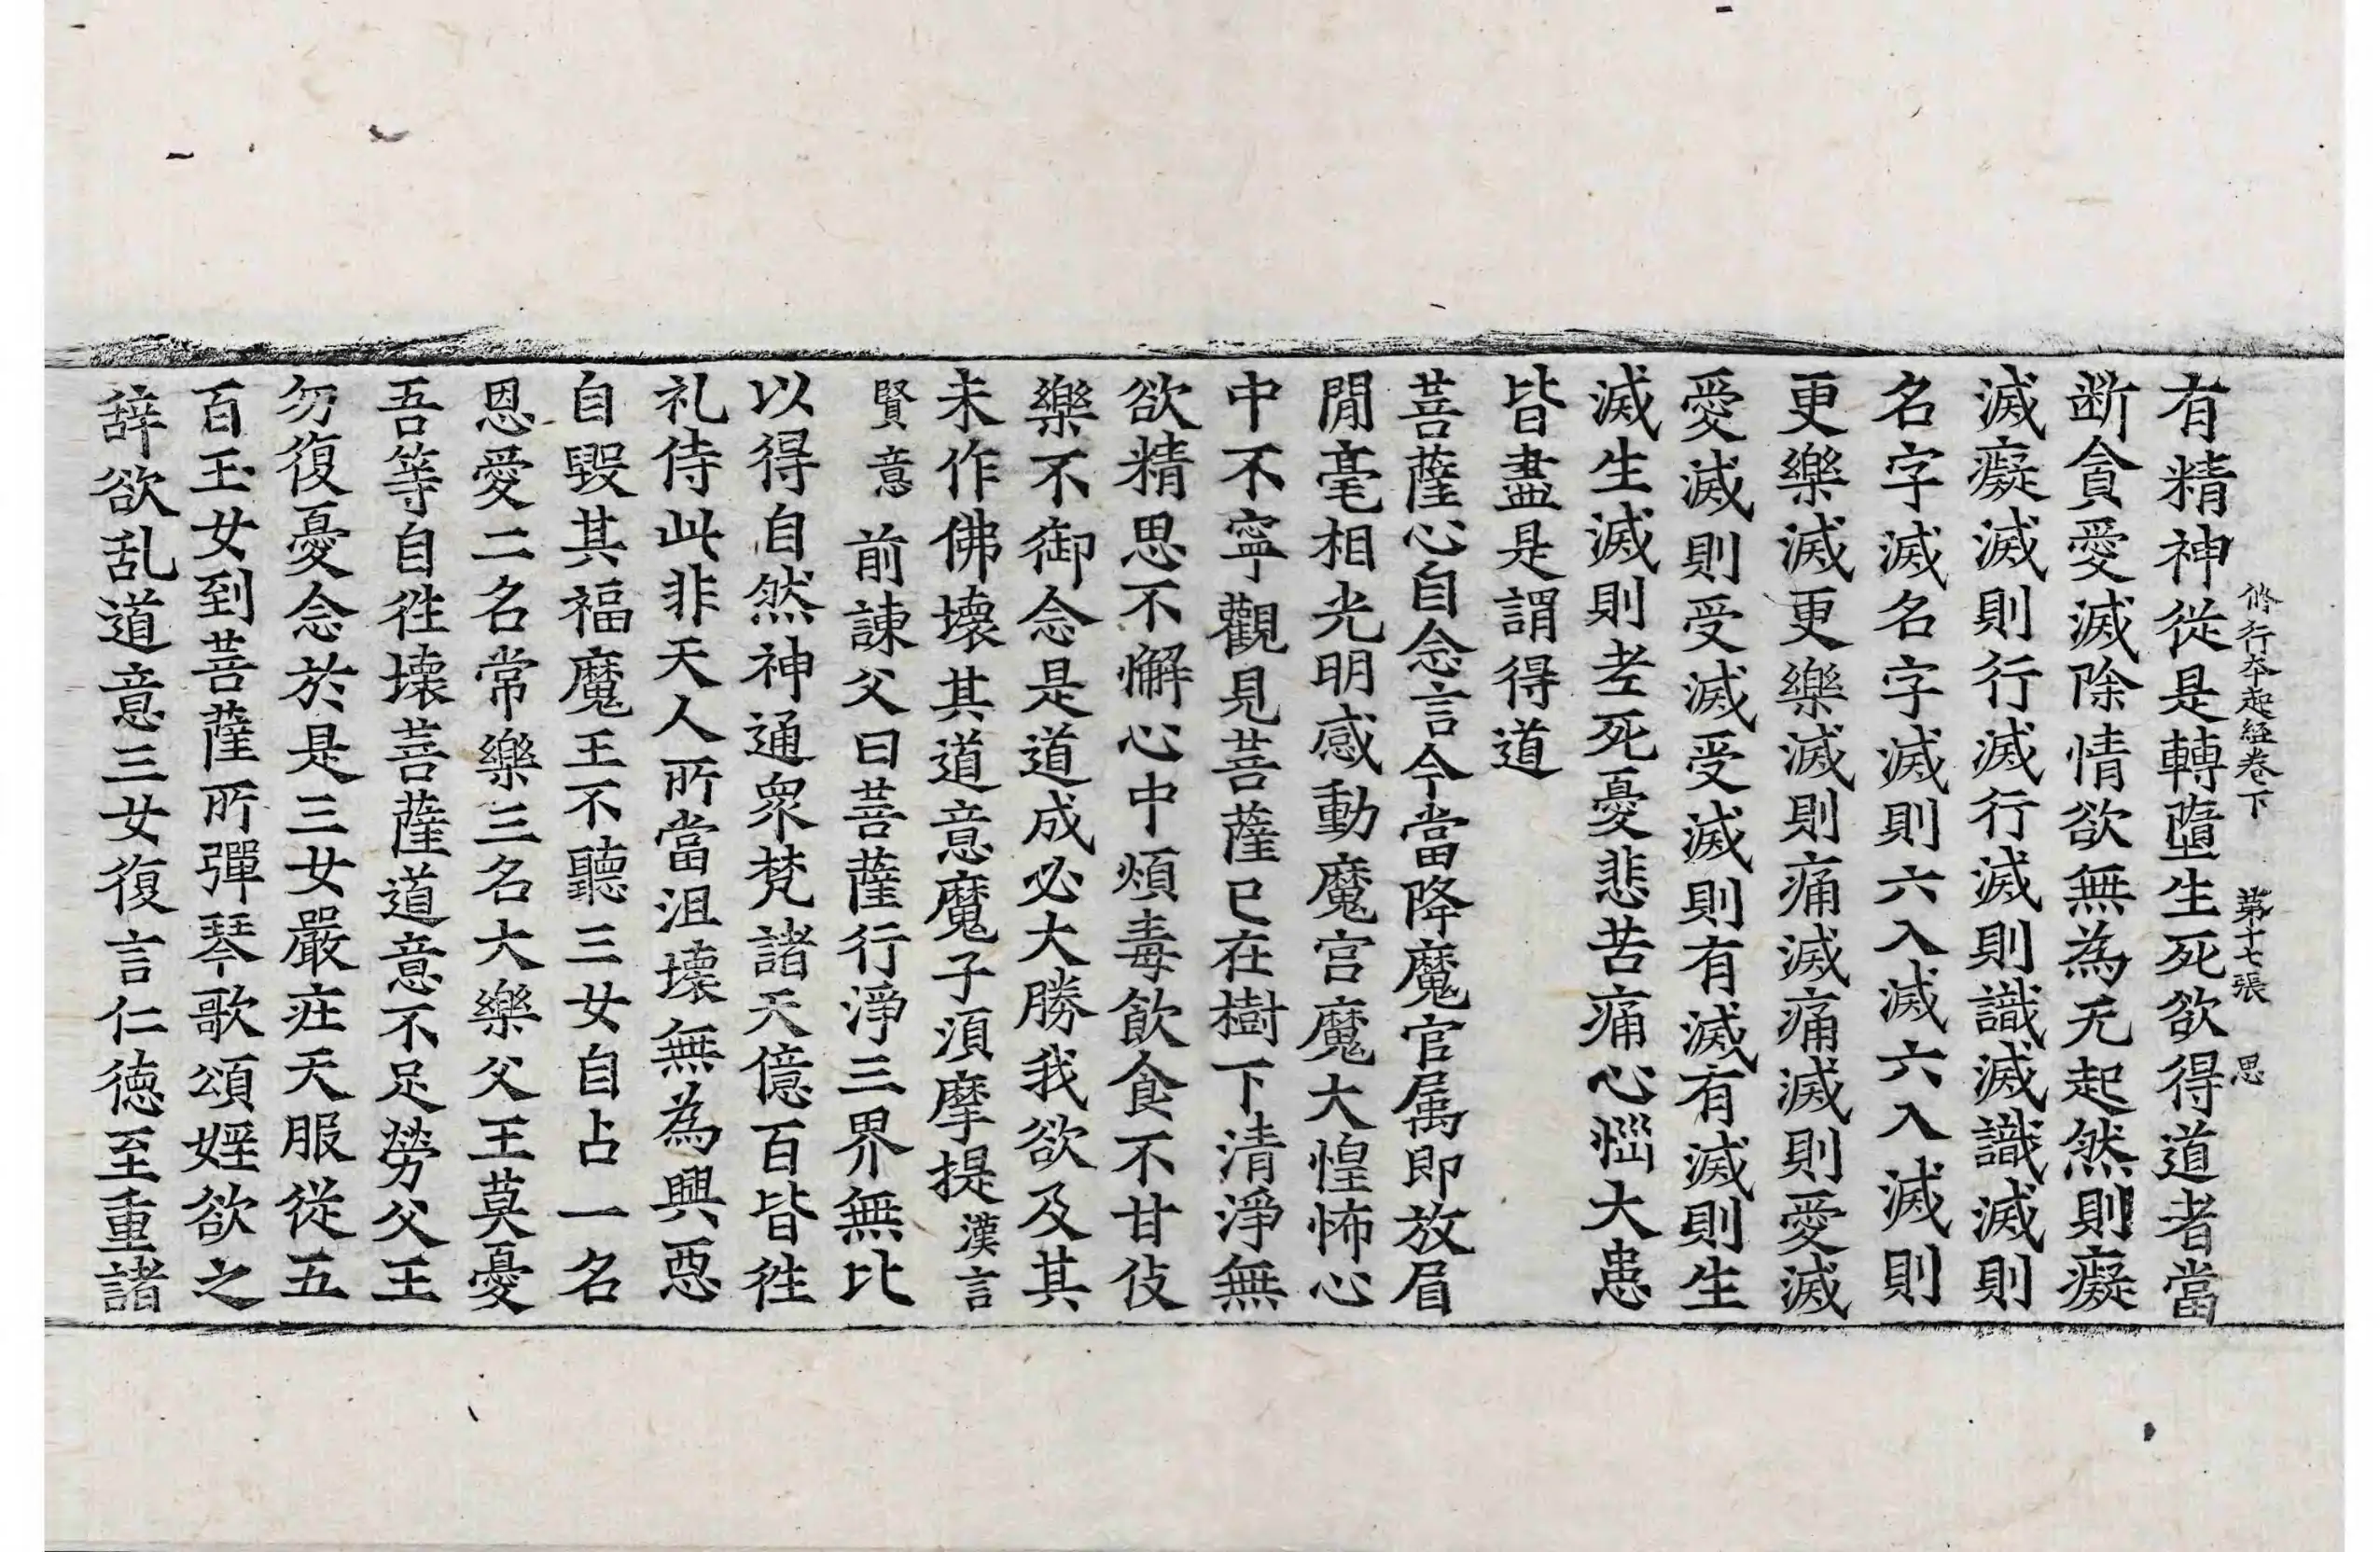 修行夲起經卷下 第十七張 思
有精神從是轉墮生死欲得道者當
断貪愛滅除情欲無為无起然則癡
滅癡滅則行滅行滅則識滅識滅則
名字滅名字滅則六入滅六入滅則
更樂滅更樂滅則痛滅痛滅則愛滅
愛滅則受滅受滅則有滅有滅則生
滅生滅則老死憂悲苦痛心惱大患
皆盡是謂得道
菩薩心自念言今當降魔官属即放眉
間毫相光明感動魔宮魔大惶怖心
中不寧觀見菩薩已在樹下清淨無
欲精思不懈心中煩毒飲食不甘伎
樂不御念是道成必大勝我欲及其
未作佛壞其道意魔子須摩提漢言
賢意前諫父曰菩薩行淨三界無比
以得自然神通眾梵諸天億百皆徃
礼侍此非天人所當沮壞無為興惡
自毀其福魔王不聽三女自占一名
恩愛二名常樂三名大樂父王莫憂
吾等自徃壞菩薩道意不足勞父王
勿復憂念於是三女嚴庄天服從五
百玉女到菩薩所彈琴歌頌婬欲之
辞欲乱道意三女復言仁德至重諸